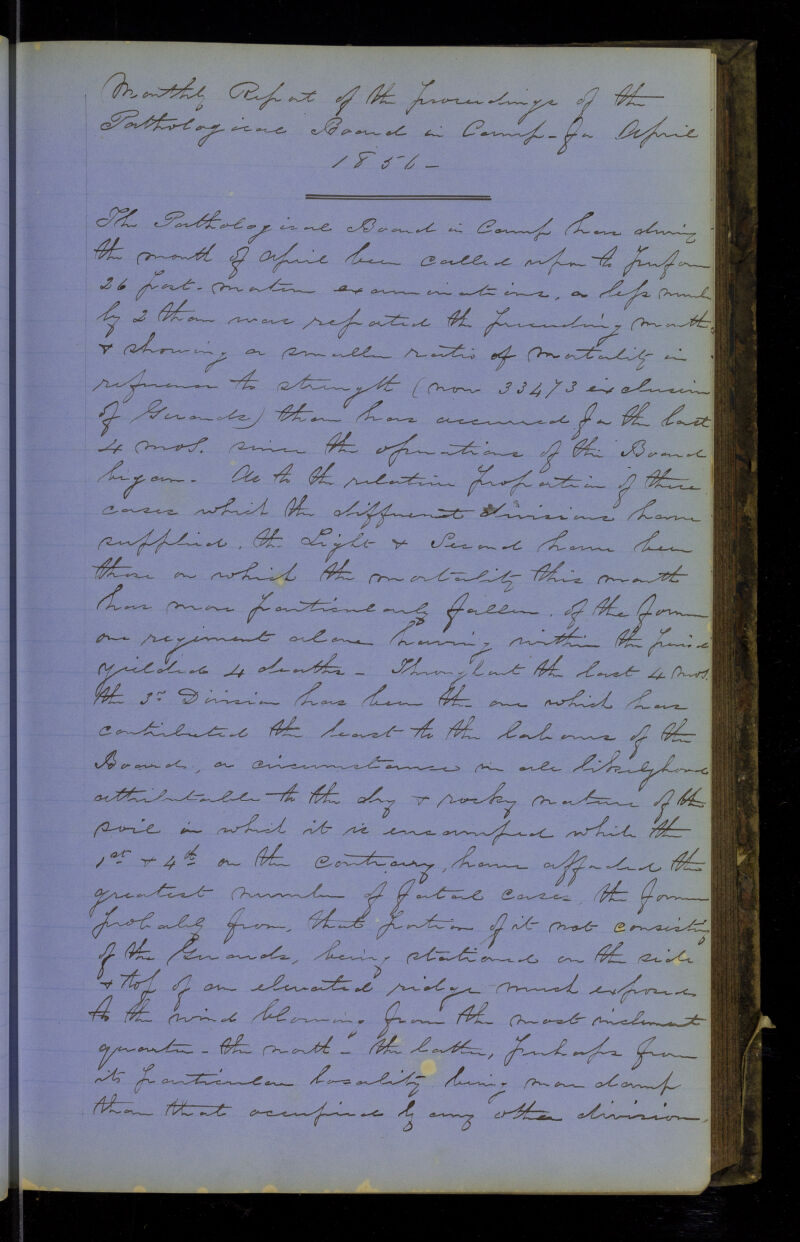 Monthly Report of the proceedings of the
Pathological Board in Camp - for April
1856 -
The Pathological Board in Camp has during
the month of April been called upon to perform
26 post-mortem examinations, a less number
by 2 than was reported the preceeding month
& showing a smaller ratio of mortality in
reference to strength (now 33473 exclusive
of Guards) than has occurred for the last
4 mos. since the operations of the Board
began. As to the relative proportion of these
cases which the different divisions have
supplied, the Light & Second have been
those on which the mortality this month
has more particularly fallen, of the former
one regiment alone having within the period
yielded 4 deaths - Throughout the last 4 mos.
the 3r Division has been the one which has
contributed the least to the labours of the
Board, a circumstance in all likelyhood
attributable to the dry & rocky nature of the
soil in which it is encamped while the
1st & 4th on the contrary, have afforded the
greatest number of fatal cases, the former
probably from, that portion of it not consisting
of the Guards, being stationed on the side
& top of an elevated ridge much exposed
to the wind blowing from the most inclement
quarter - the north - the latter, perhaps from
its particular locality being more damp
than that occupied by any other division.